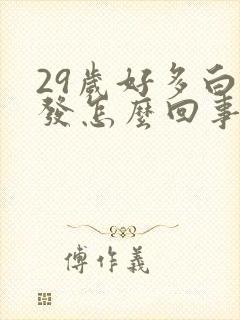 29歲好多白
發怎麼回事
傅作義